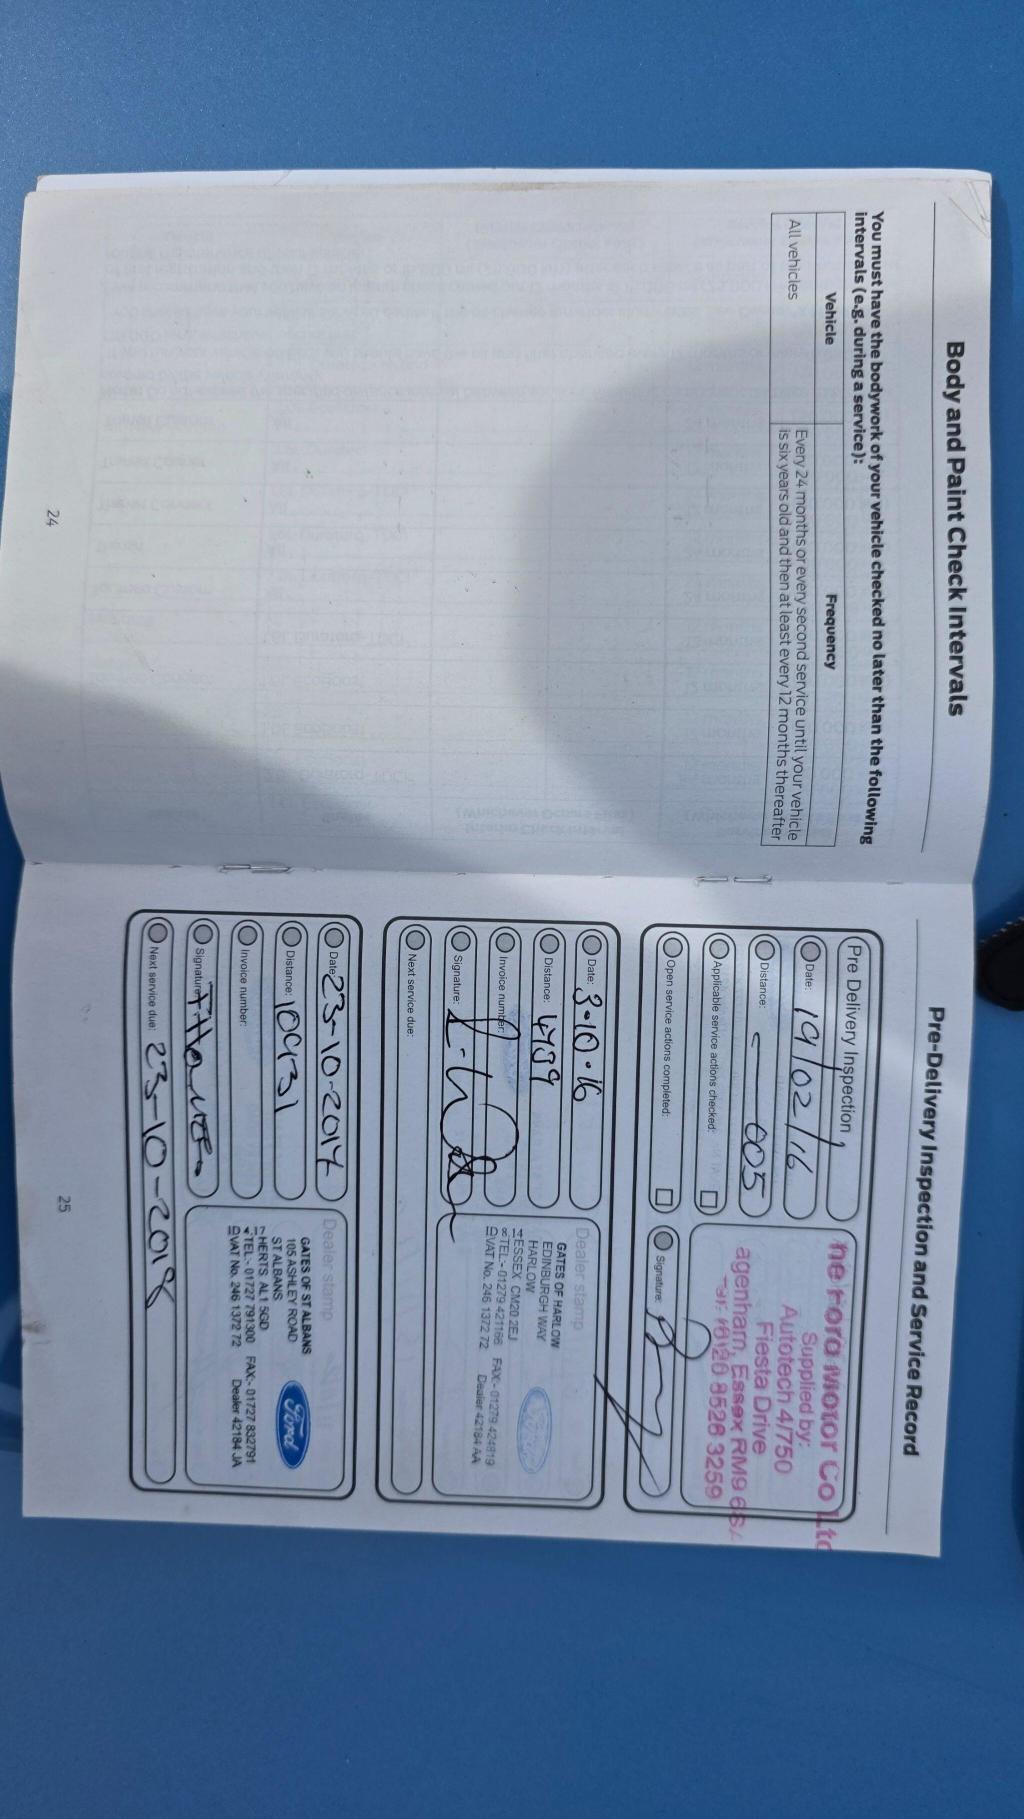 Body and Paint Check Intervals
You must have the bodywork of your vehicle checked no later than the following
intervals (e.g. during a service):
Vehicle Frequency
All vehicles Every 24 months or every second service until your vehicle
is six years old and then at least every 12 months thereafter
24
Pre-Delivery Inspection and Service Record
Pre Delivery Inspection
Date: 19/02/16
Distance: 005
Applicable service actions checked:
Open service actions completed:
Signature:
he Ford Motor Co Ltd
Supplied by:
Autotech 4/750
Fiesta Drive
agenham, Essex RM9 6SA
020 8526 3259
Date: 3.10.16
Distance: 4789
Invoice number:
Signature:
Next service due:
Dealer stamp
GATES OF HARLOW
EDINBURGH WAY
HARLOW
ESSEX CM20 2EJ
TEL:- 01279 421166 FAX:- 01279 424819
VAT No. 246 1372 72 Dealer 42184 AA
Ford
Date: 23-10-2017
Distance: 10931
Invoice number:
Signature:
Next service due: 23-10-2018
Dealer stamp
GATES OF ST ALBANS
105 ASHLEY ROAD
ST ALBANS
HERTS AL1 5GD
TEL:- 01727 791300 FAX:- 01727 832791
VAT No. 246 1372 72 Dealer 42184 JA
Ford
25